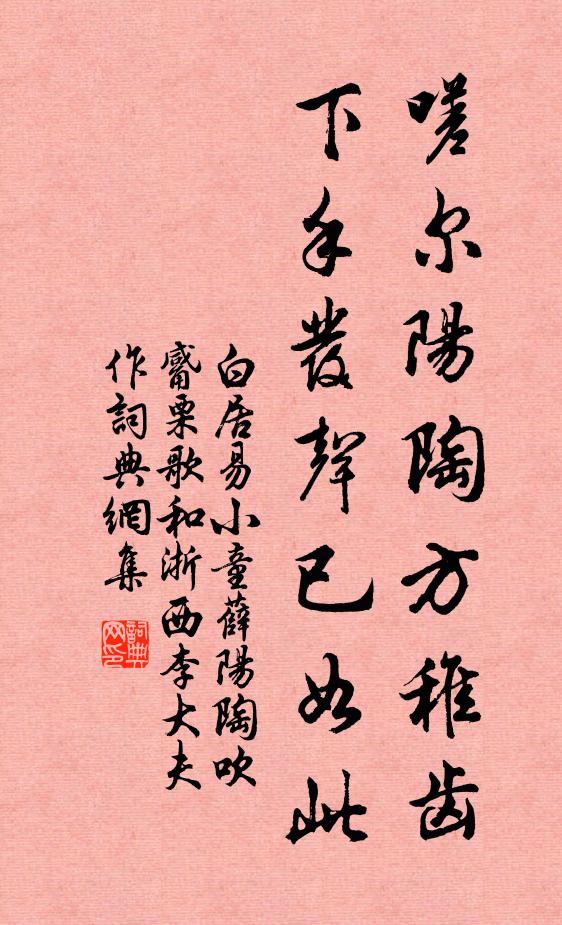 嗟尔陽陶方稚齒
下手發聲已如此
白居易小童薛陽陶吹
觱栗歌和浙西李大夫
作詞典網集
詞典
网印